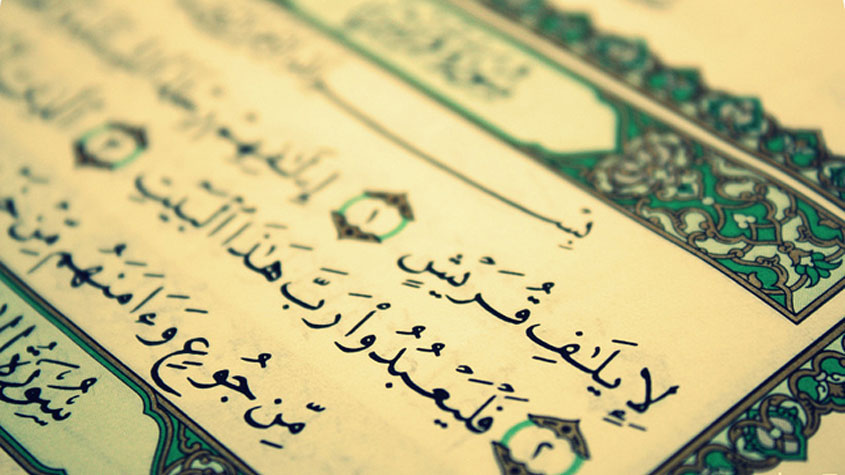 سُورَةُ
بِسۡ
لِإِيلَٰفِ قُرَيۡشٍ ١ إِۦلَٰفِهِمۡ
٢ فَلۡيَعۡبُدُواْ رَبَّ هَٰذَا ٱلۡبَيۡتِ ٣ ٱلَّذِيٓ
مِّن جُوعٖ وَءَامَنَهُم مِّنۡ
سُورَةُ